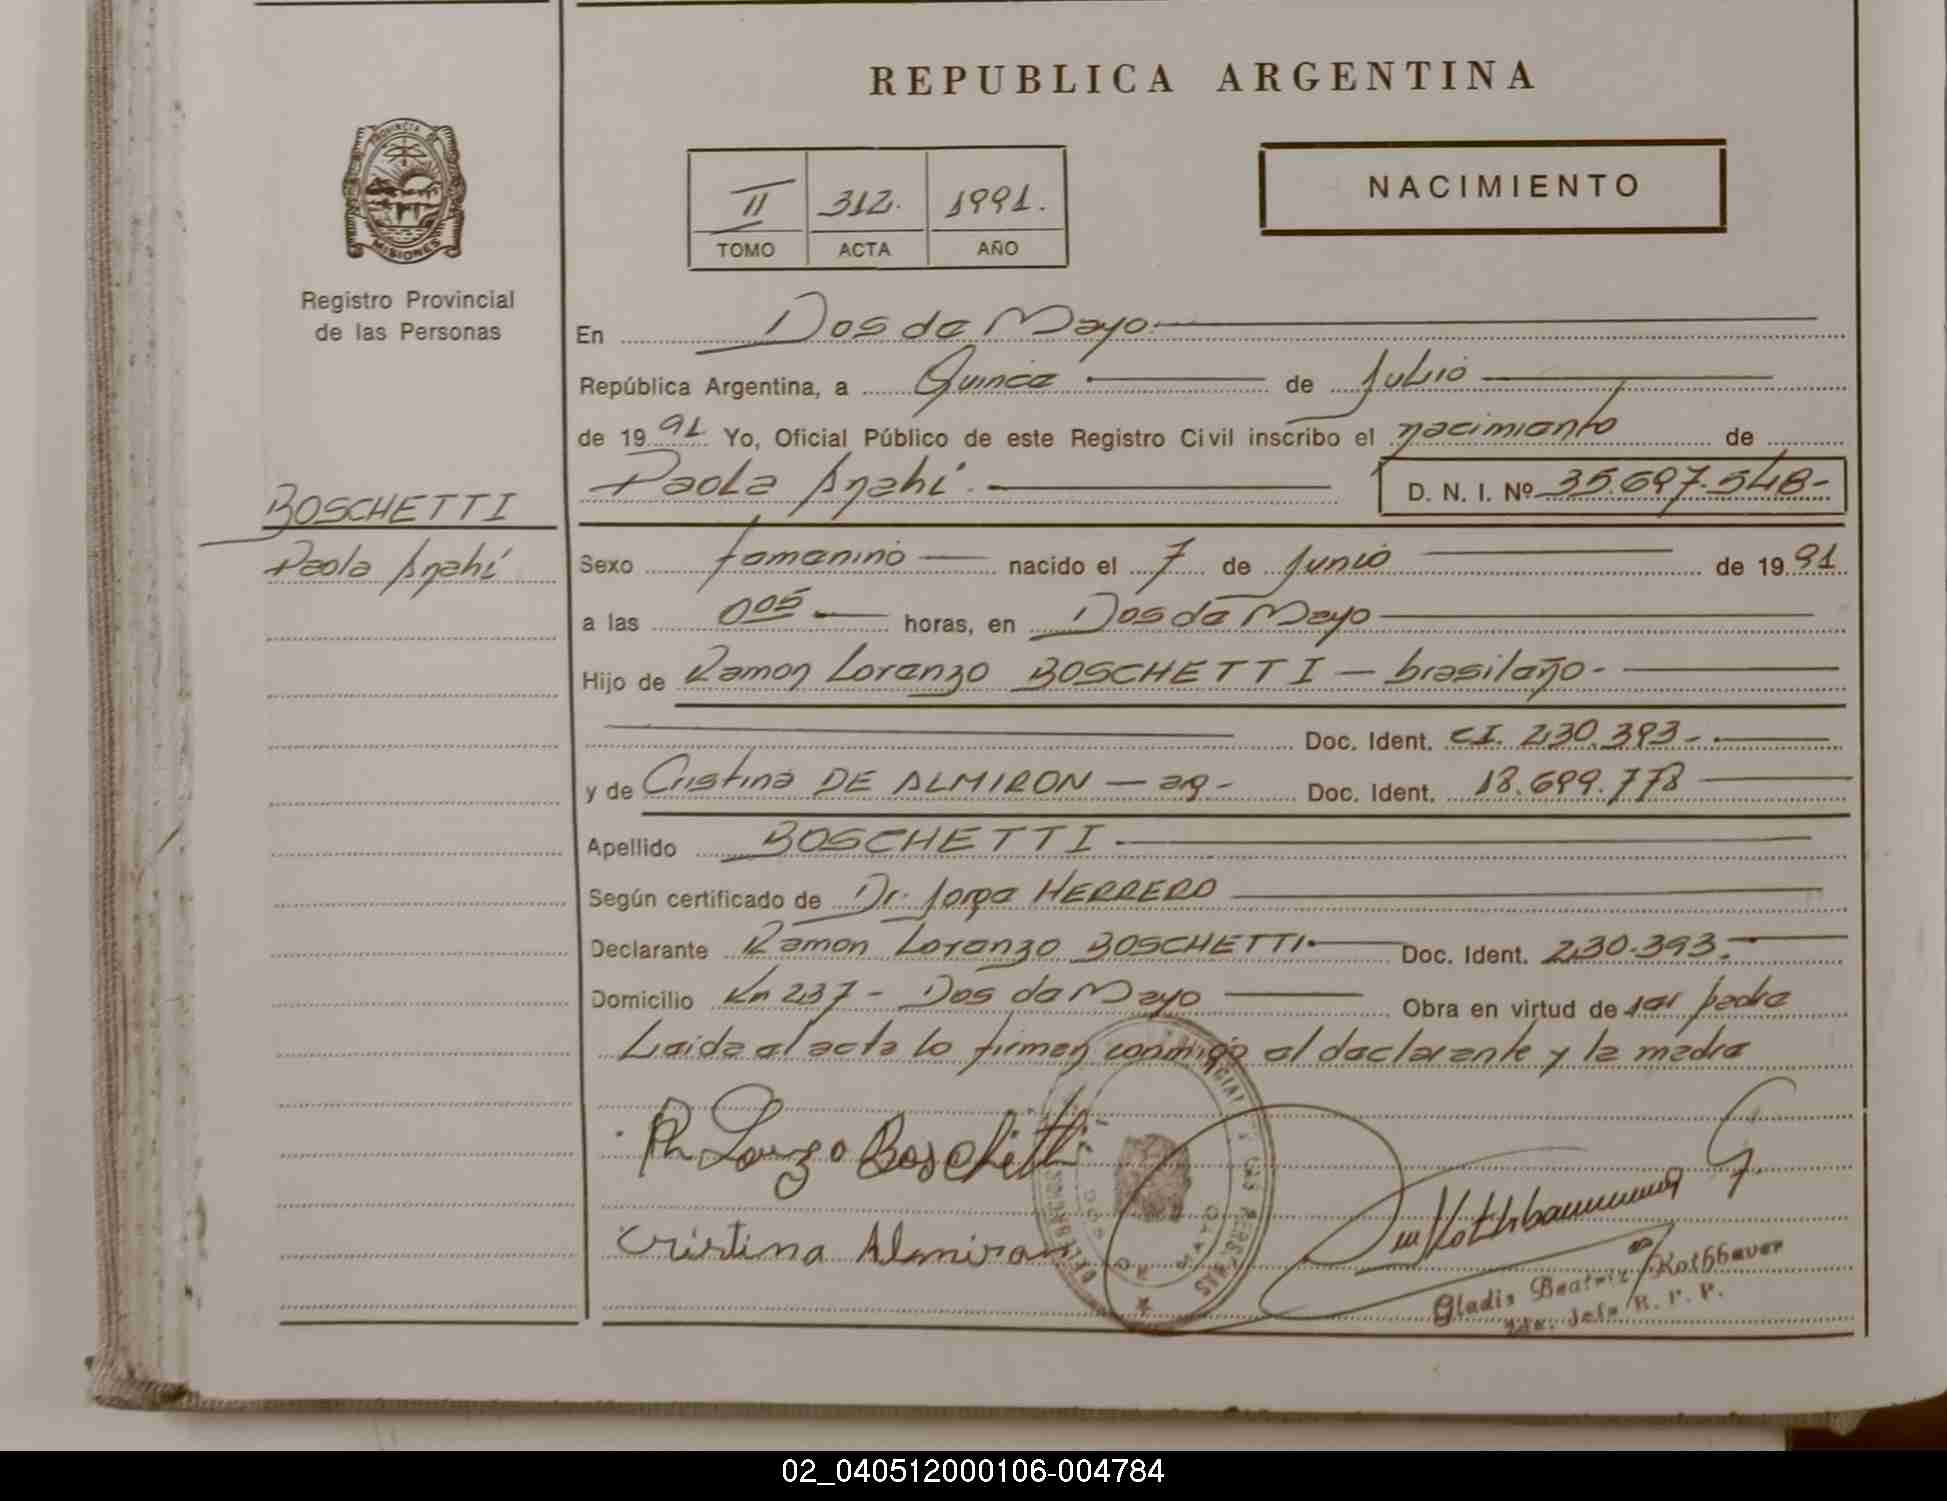 REPUBLICA ARGENTINA
PROVINCIA DE
MISIONES
Registro Provincial
de las Personas
II 312. 1991.
TOMO ACTA AÑO
NACIMIENTO
En Dos de Mayo
República Argentina, a Quince de Julio
de 1991 Yo, Oficial Público de este Registro Civil inscribo el nacimiento de
Paola Anahí D. N. I. Nº 35.697.548-
BOSCHETTI
Paola Anahí
Sexo femenino nacido el 7 de Junio de 1991
a las 005 horas, en Dos de Mayo
Hijo de Ramon Lorenzo BOSCHETTI - brasileño-
Doc. Ident. CI. 230.393-
y de Cristina DE ALMIRON - arg- Doc. Ident. 18.699.778
Apellido BOSCHETTI
Según certificado de Dr. Jorge HERRERO
Declarante Ramon Lorenzo BOSCHETTI. Doc. Ident. 230.393.
Domicilio Km 237 - Dos de Mayo Obra en virtud de ser padre
Leida el acta lo firman conmigo el declarante y la madre
Rn Lorenzo Boschetti
Cristina Almiron
DOS DE MAYO
Gladis Beatriz Kothbauer
Jefe R. P. P.
02_040512000106-004784